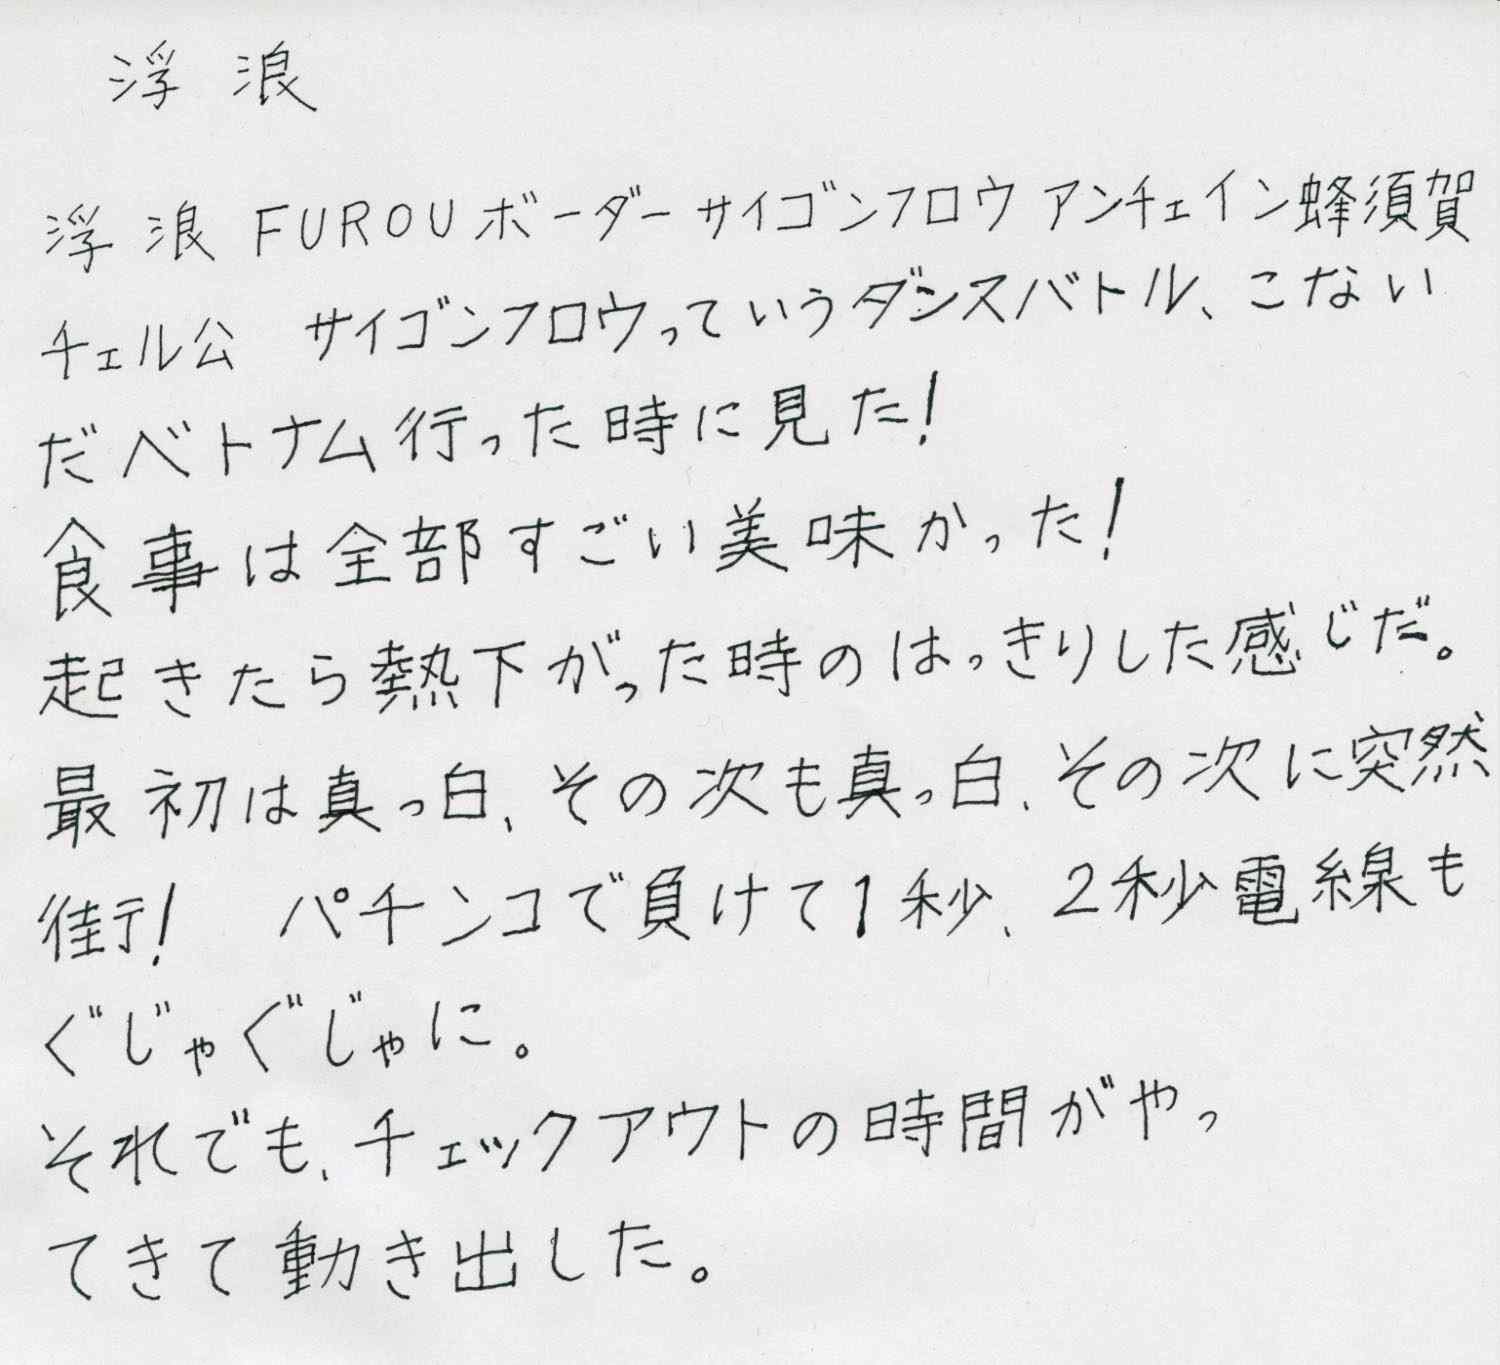 浮浪
浮浪FUROUボーダーサイゴンフロウアンチェイン蜂須賀
チェル公 サイゴンフロウっていうダンスバトル、こない
だベトナム行った時に見た!
食事は全部すごい美味かった!
起きたら熱下がった時のはっきりした感じだ。
最初は真っ白、その次も真っ白、その次に突然
街! パチンコで負けて1秒、2秒電線も
ぐじゃぐじゃに。
それでも、チェックアウトの時間がやっ
てきて動き出した。